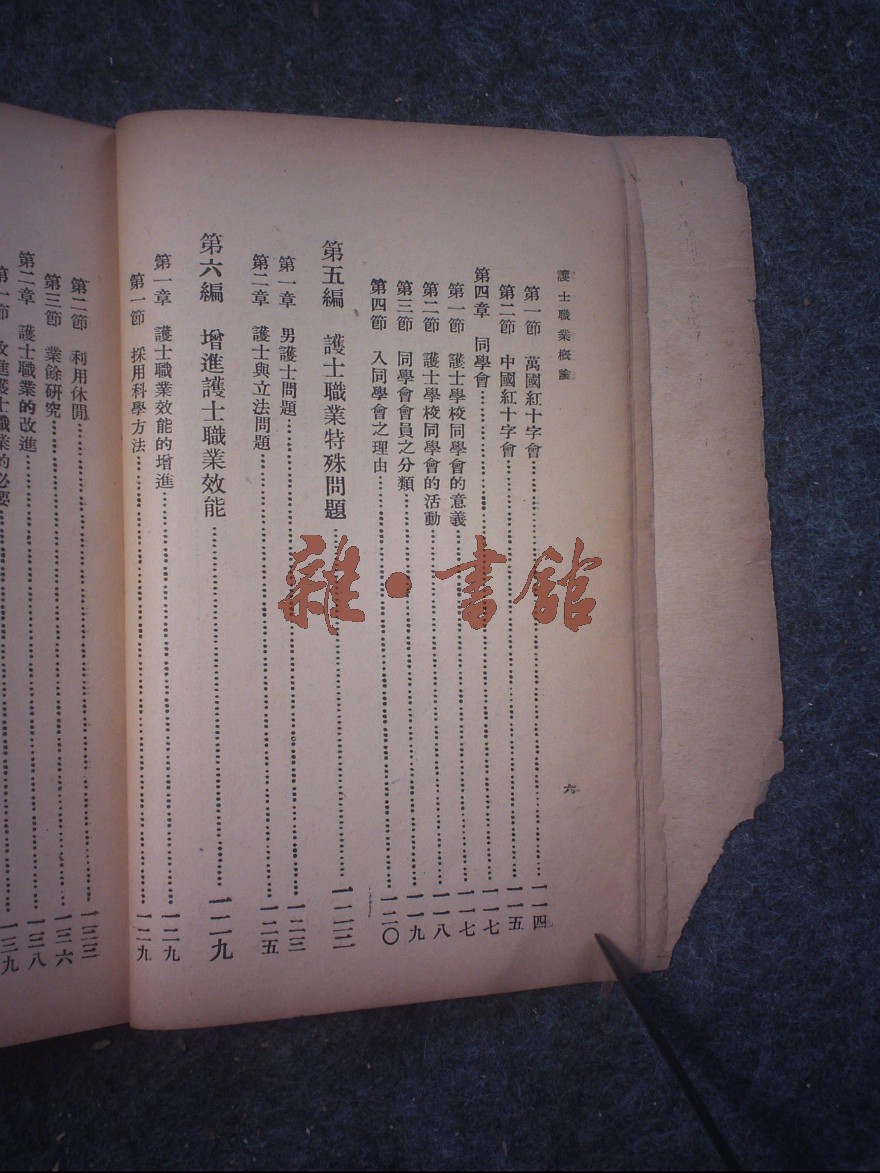 護士職業概論
第一節 萬國紅十字會……一一四
第二節 中國紅十字會……一一五
第四章 同學會……一一七
第一節 護士學校同學會的意義……一一七
第二節 護士學校同學會的活動……一一八
第三節 同學會會員之分類……一一九
第四節 入同學會之理由……一二〇
第五編 護士職業特殊問題……一二三
第一章 男護士問題……一二三
第二章 護士與立法問題……一二五
第六編 增進護士職業效能……一二九
第一章 護士職業效能的增進……一二九
第一節 採用科學方法……一二九
六
第二節 利用休閒……一三三
第三節 業餘研究……一三六
第二章 護士職業的改進……一三八
第一節 改進護士職業的必要……一三九
雜·書館